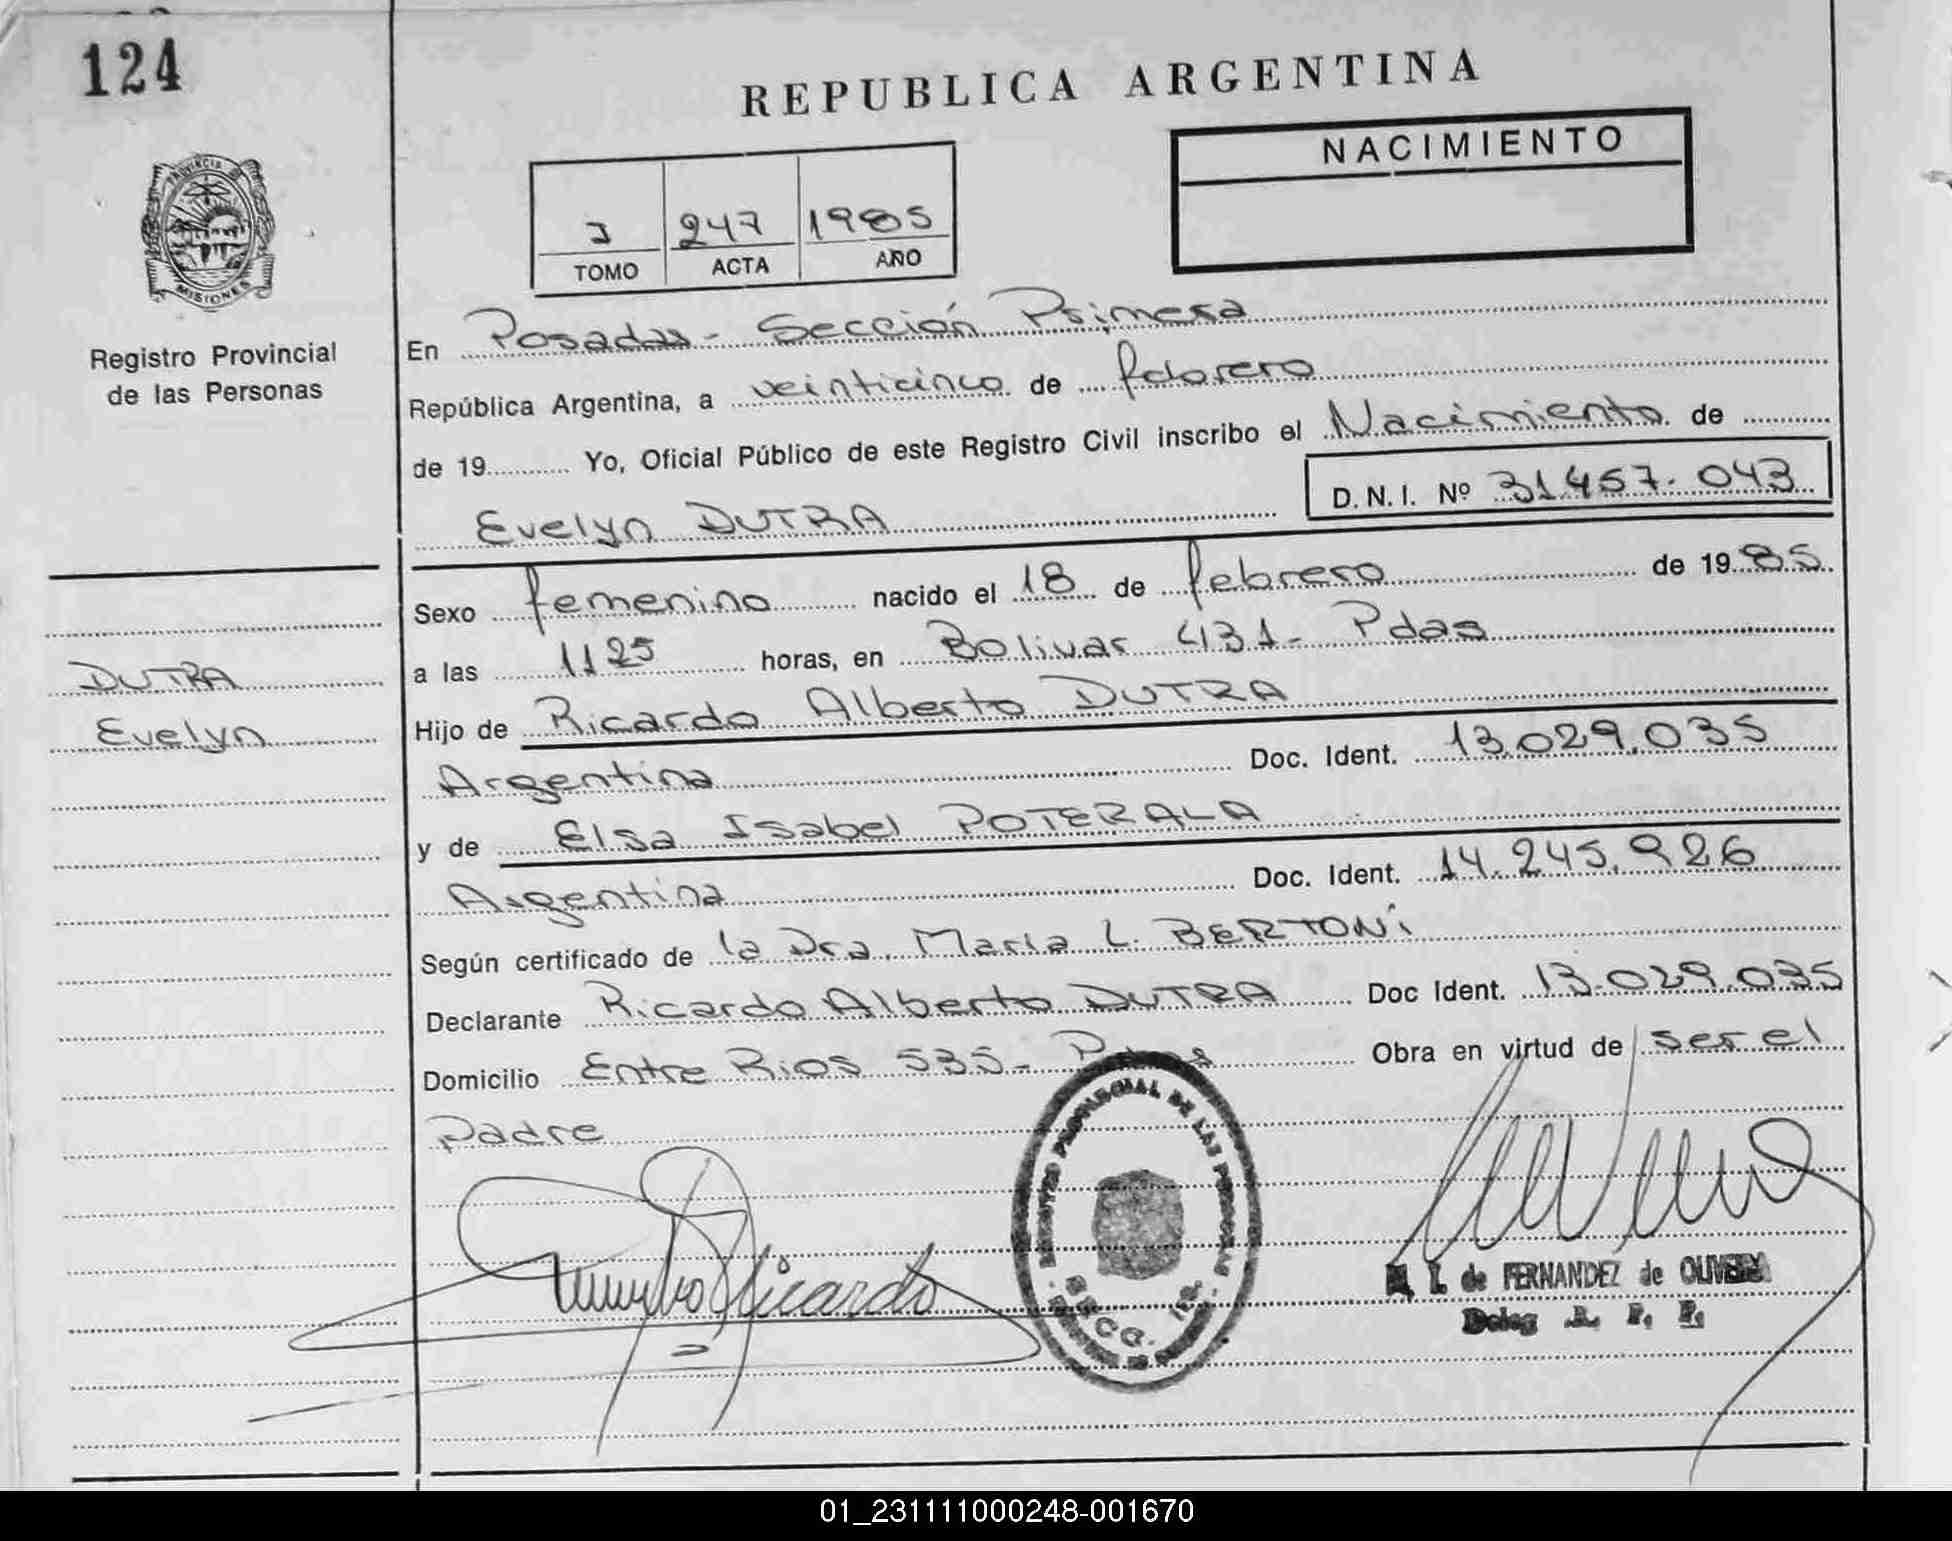 124
REPUBLICA ARGENTINA
NACIMIENTO
PROVINCIA DE
MISIONES
Registro Provincial
de las Personas
247 1985
TOMO ACTA AÑO
En Posadas - Sección Primera
República Argentina, a veinticinco de febrero
de 19 Yo, Oficial Público de este Registro Civil inscribo el Nacimiento de
D. N. I. Nº 31457.043
Evelyn DUTRA
Sexo femenino nacido el 18 de febrero de 1985
a las 1125 horas, en Bolivar 431 - Pdas
DUTRA
Evelyn
Hijo de Ricardo Alberto DUTRA
Argentina Doc. Ident. 13.029.035
y de Elsa Isabel POTERALA
Argentina Doc. Ident. 14.245.926
Según certificado de la Dra. María L. BERTONi
Declarante Ricardo Alberto DUTRA Doc Ident. 13.029.035
Domicilio Entre Rios 535 - Pdas Obra en virtud de ser el
Padre
REGISTRO PROVINCIAL DE LAS PERSONAS
SECC. 1ra.
Ricardo
M. I. de FERNANDEZ de OLIVERA
Deleg R. P. P.
01_231111000248-001670